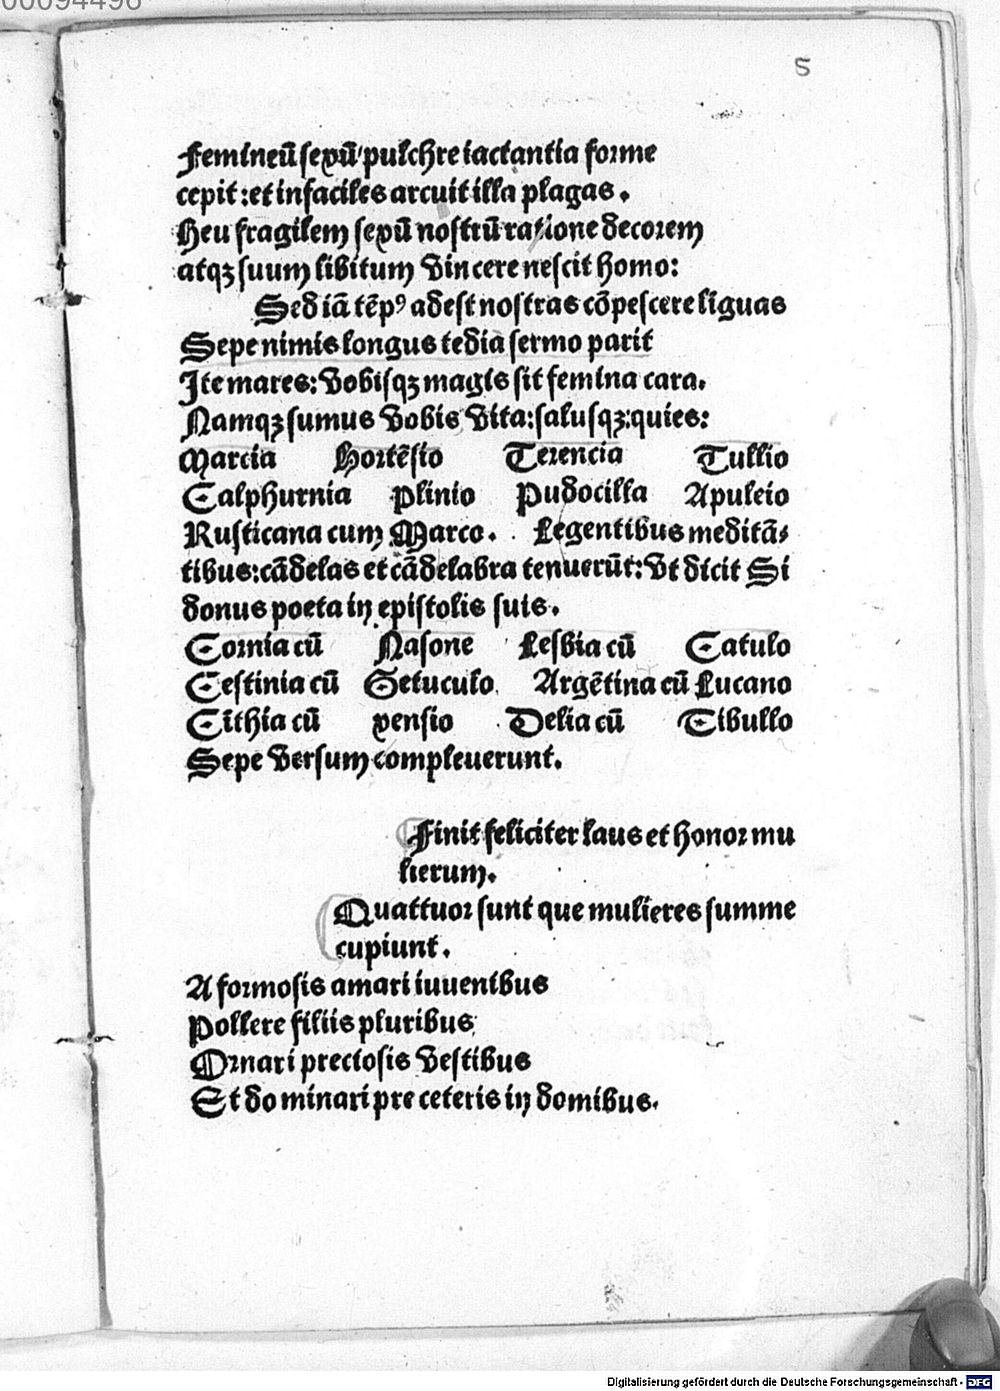 00094496
5
Femineū sexū pulchre iactantia forme
cepit: et in faciles arcuit illa plagas.
Heu fragilem sexū nostrū ratione decorem
atqꝫ suum libitum vincere nescit homo:
Sed iā tēpꝰ adest nostras cōpescere liguas
Sepe nimis longus tedia sermo parit
Ite mares: vobisqꝫ magis sit femina cara.
Namqꝫ sumus vobis vita: salusqꝫ: quies:
Marcia Hortēsio Terencia Tullio
Calphurnia Plinio Pudocilla Apuleio
Rusticana cum Marco. Legentibus meditā⸗
tibus: cādelas et cādelabra tenuerūt: vt dicit Si
donus poeta in epistolis suis.
Cornia cū Nasone Lesbia cū Catulo
Cestinia cū Getuculo Argētina cū Lucano
Cithia cū xensio Delia cū Tibullo
Sepe versum compleuerunt.
Finit feliciter laus et honor mu
lierum.
Quattuor sunt que mulieres summe
cupiunt.
A formosis amari iuuenibus
Pollere filiis pluribus
Ornari preciosis vestibus
Et dominari pre ceteris in domibus.
Digitalisierung gefördert durch die Deutsche Forschungsgemeinschaft - DFG